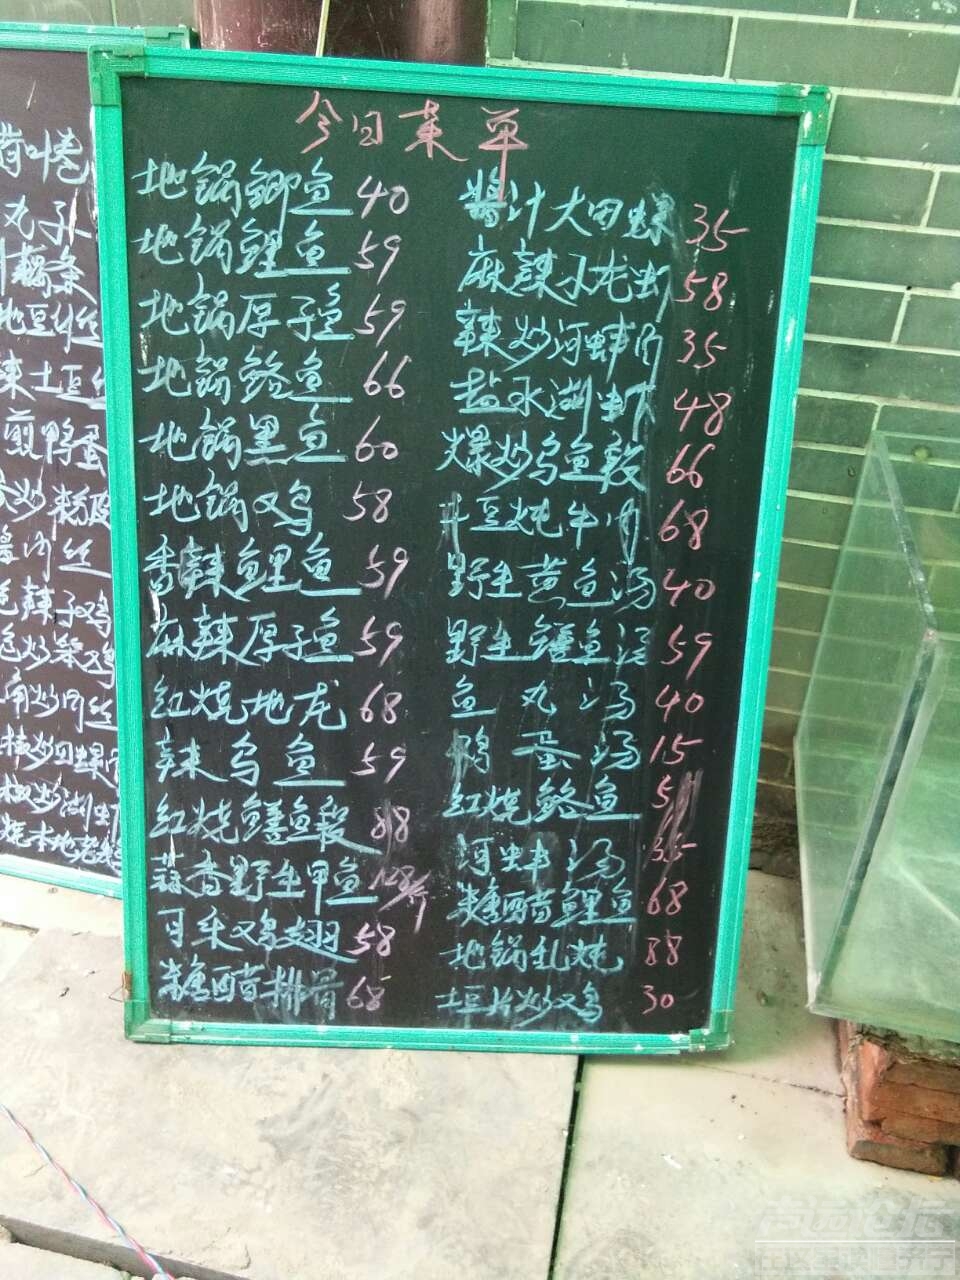 今日菜单
地锅鲫鱼 40
地锅鲤鱼 59
地锅厚子鱼 59
地锅鲶鱼 66
地锅黑鱼 60
地锅又鸟 58
香辣鲤鱼 59
麻辣厚子鱼 59
红烧地龙 68
辣乌鱼 59
红烧鳝鱼段 88
蒜香野生甲鱼 128/斤
可乐鸡翅 58
糖醋排骨 68
酱汁大田螺 35
麻辣小龙虾 58
辣炒河蚌肉 35
盐水湖虾 48
爆炒乌鱼段 66
土豆炖牛肉 68
野生黄鱼汤 40
野生鳝鱼汤 59
鱼丸汤 40
鸭蛋汤 15
红烧鲶鱼
河蚌汤 35
糖醋鲤鱼 68
地锅乱炖 88
土豆片炒鸡 30
荷叶卷
丸子
藕条
地豆丝
辣土豆丝
煎鸭蛋
炒粉皮
酱肉丝
辣子鸡
炒笨鸡
炒肉丝
椒炒田螺
椒炒湖虾
烧本地老